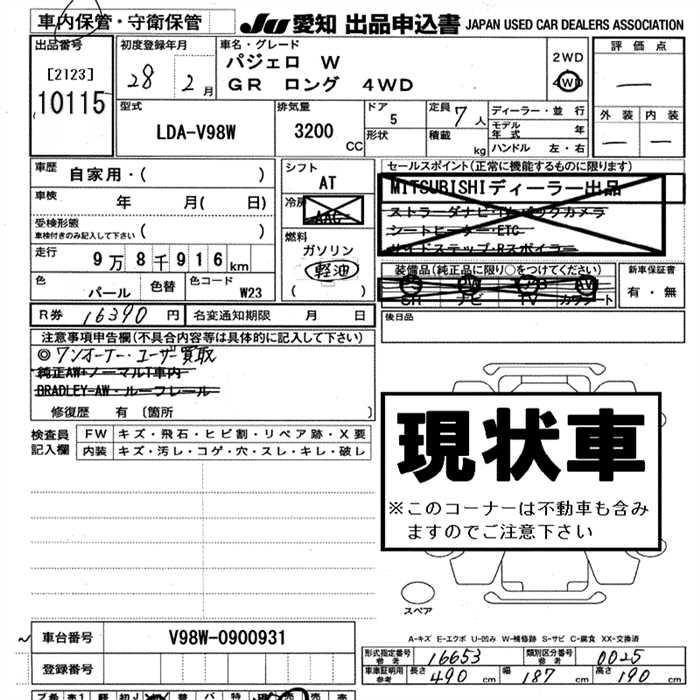 車内保管・守衛保管
JU 愛知 出品申込書 JAPAN USED CAR DEALERS ASSOCIATION
出品番号
[2123]
10115
初度登録年月
28 2月
車名・グレード
パジェロ W
GR ロング 4WD
2WD
4WD
評価点
—
外装 内装
— —
型式
LDA-V98W
排気量
3200 CC
ドア
5
形状
定員 7人
積載 kg
ディーラー・並行
モデル年式 年
ハンドル 左・右
車歴
自家用・( )
車検
年 月( 日)
受検形態
車検付きのみ記入して下さい ( )
走行
9万8千916km
色
パール
色替
色コード
W23
シフト
AT
冷房
AAC
燃料
ガソリン
軽油
( )
セールスポイント(正常に機能するものに限ります)
MITSUBISHIディーラー出品
ストラーダナビ・TV・バックカメラ
シートヒーター・ETC
サイドステップ・Rスポイラー
装備品(純正品に限り○をつけてください)
SR ナビ TV カワシート
新車保証書
有・無
R券 16390円
名変通知期限 月 日
後日品
注意事項申告欄(不具合内容等は具体的に記入して下さい)
◎ワンオーナー・ユーザー買取
純正AW+ノーマルT車内
BRADLEY-AW・ルーフレール
修復歴 有(箇所 )
検査員記入欄
FW キズ・飛石・ヒビ割・リペア跡・X要
内装 キズ・汚レ・コゲ・穴・スレ・キレ・破レ
現状車
※このコーナーは不動車も含み
ますのでご注意下さい
スペア
A-キズ E-エクボ U-凹み W-補修跡 S-サビ C-腐食 XX-交換済
車台番号 V98W-0900931
登録番号
形式指定番号 参考 16653
類別区分番号 参考 0025
車庫証明用 参考 長さ 490cm 幅 187cm 高さ 190cm